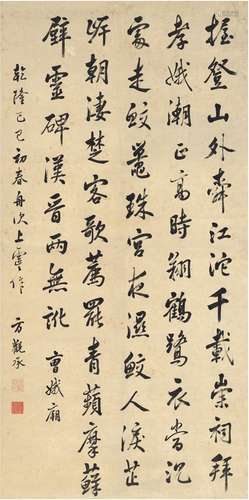 握登山外牽江沱千載崇祠拜
孝娥潮正高時翔鶴鷺衣當沉
處走蛟鼉珠宮夜濕鮫人淚芷
岸朝淒楚客歌薦罷青蘋摩蘚
壁靈碑漢晉兩無訛 曹娥廟
乾隆己巳初春舟次上虞作 方觀承